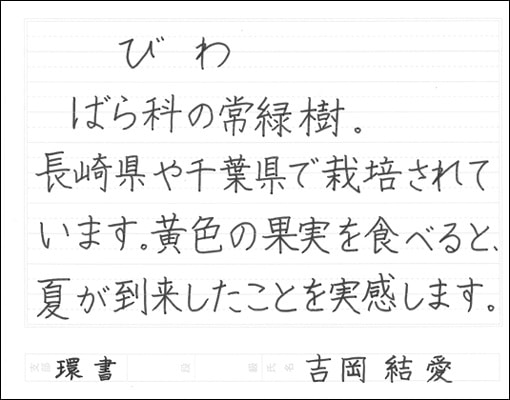 びわ
ばら科の常緑樹。
長崎県や千葉県で栽培されて
います。黄色の果実を食べると、
夏が到来したことを実感します。
支部 環書 段 級 氏名 吉岡結愛